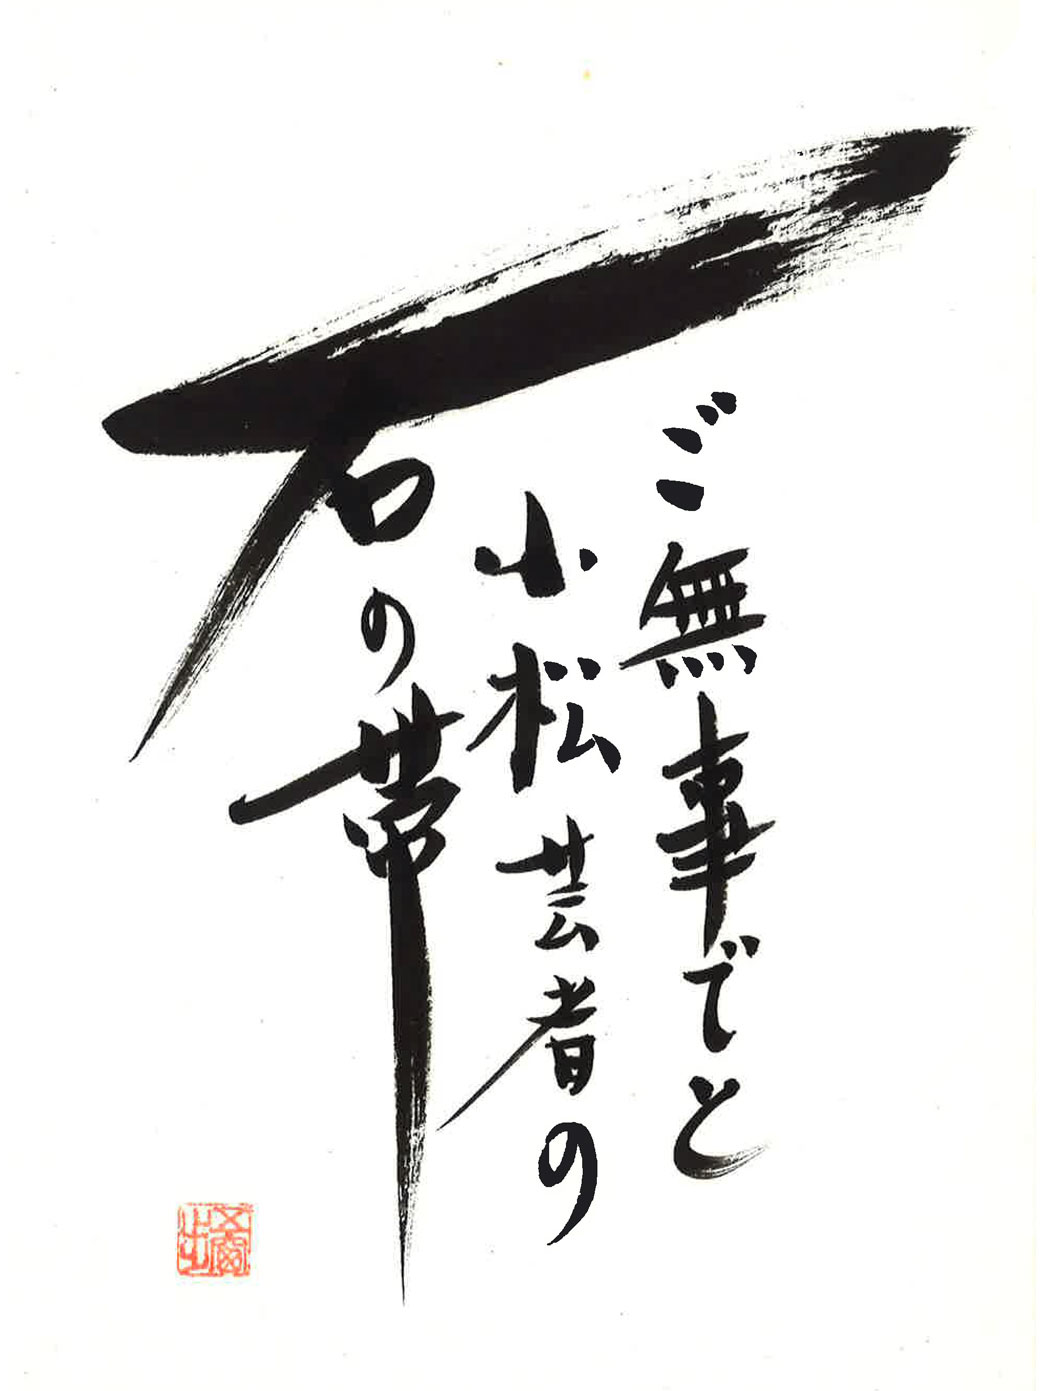 ご無事でと
小松芸者の
石の帯